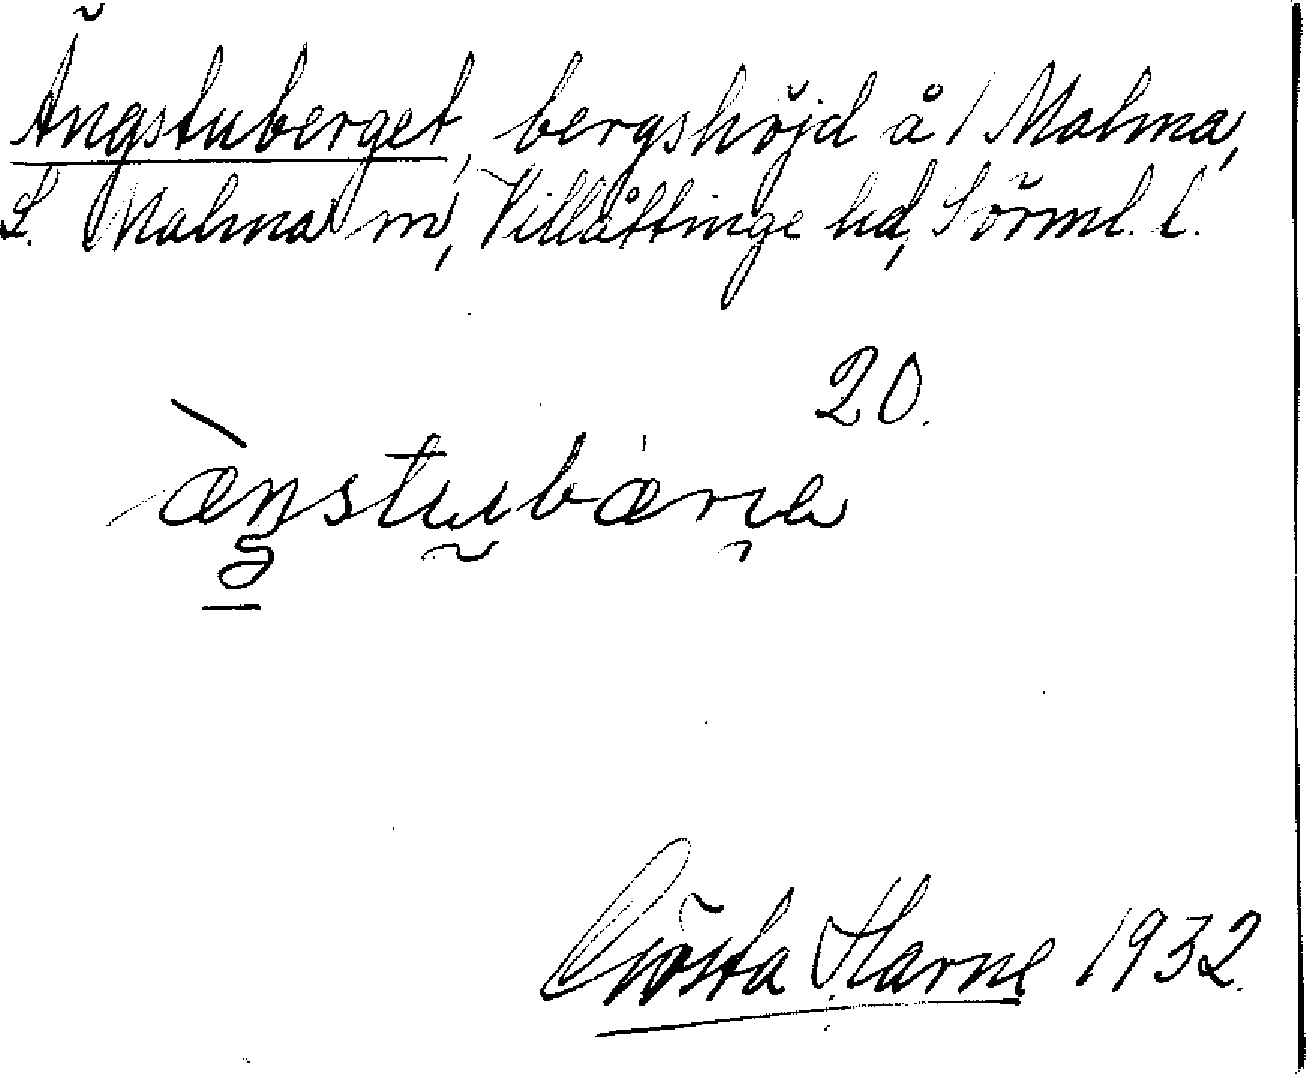 Ängstuberget, bergshöjd å / Malma,
L. Malma sn, Villåttinge hd, Sörml. l.
20.
Gösta Harne 1932.